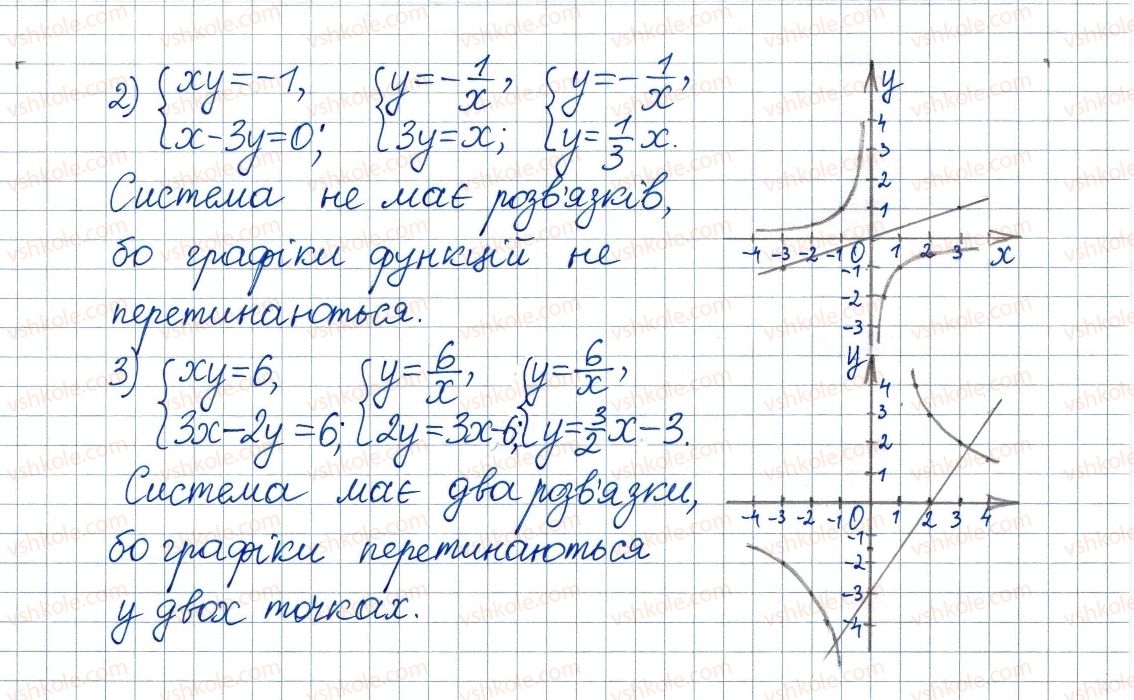 2) { xy = -1, x - 3y = 0; { y = -1/x, 3y = x; { y = -1/x, y = 1/3 x.
Система не має розв'язків,
бо графіки функцій не
перетинаються.
3) { xy = 6, 3x - 2y = 6; { y = 6/x, 2y = 3x - 6; { y = 6/x, y = 3/2 x - 3.
Система має два розв'язки,
бо графіки перетинаються
у двох точках.
y
4
3
2
1
-4 -3 -2 -1 0 1 2 3 x
-1
-2
-3
y
4
3
2
1
-4 -3 -2 -1 0 1 2 3 4
-1
-2
-3
-4
vshkole.com